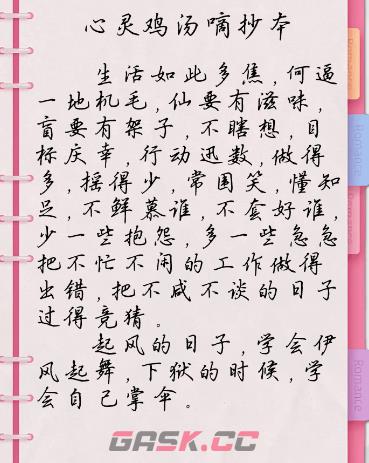 心灵鸡汤嘀抄本
生活如此多焦,何逼
一地机毛,仙要有滋味,
盲要有架子,不瞎想,目
标庆幸,行动迅数,做得
多,摇得少,常国笑,懂知
足,不鲜慕谁,不套好谁,
少一些抱怨,多一些急急
把不忙不闲的工作做得
出错,把不咸不谈的日子
过得竞猜。
起风的日子,学会伊
风起舞,下狱的时候,学
会自己掌伞。
Romance
Romance
Romance
Romance
GASK.CC